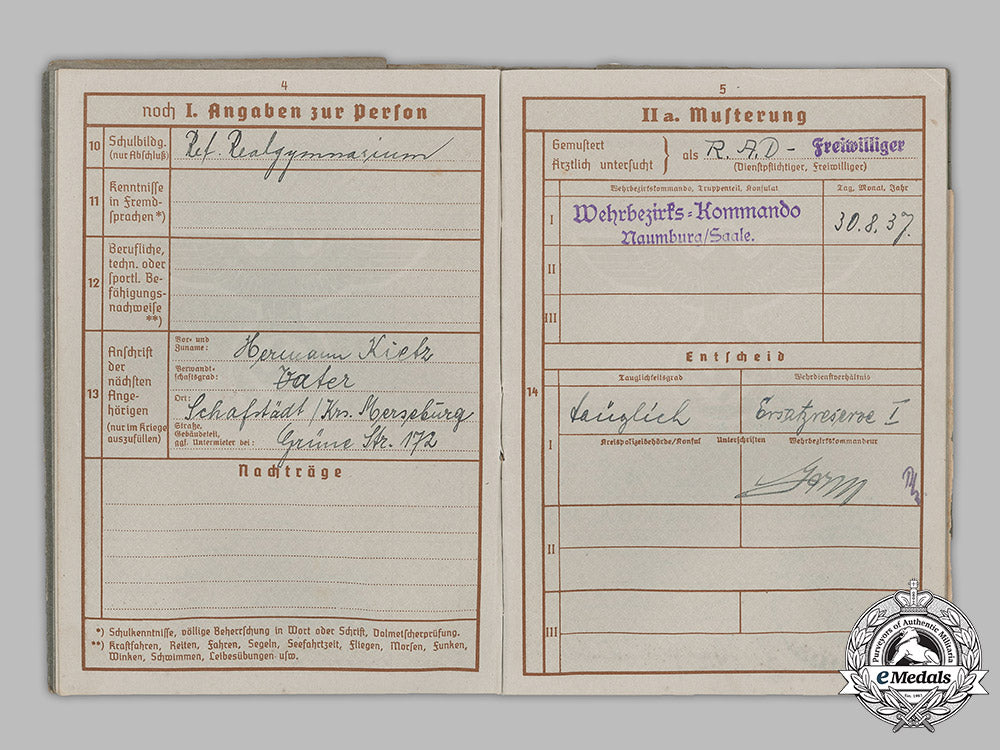 4
noch I. Angaben zur Person
10 Schulbildg. (nur Abschluß)
Ref. Realgymnasium
11 Kenntnisse in Fremdsprachen *)
12 Berufliche, techn. oder sportl. Befähigungsnachweise **)
13 Anschrift der nächsten Angehörigen (nur im Kriege auszufüllen)
Vor- und Zuname: Hermann Kietz
Verwandtschaftsgrad: Vater
Ort: Schafstädt / Krs. Merseburg
Straße, Gebäudeteil, ggl. Untermieter bei: Grüne Str. 172
Nachträge
*) Schulkenntnisse, völlige Beherrschung in Wort oder Schrift, Dolmetscherprüfung.
**) Kraftfahren, Reiten, Fahren, Segeln, Seefahrtzeit, Fliegen, Morsen, Funken,
Winken, Schwimmen, Leibesübungen usw.
5
II a. Musterung
Gemustert
Ärztlich untersucht } als R.A.D- Freiwilliger
(Dienstpflichtiger, Freiwilliger)
Wehrbezirkskommando, Truppenteil, Konsulat
Tag, Monat, Jahr
I Wehrbezirks=Kommando
Naumburg/Saale.
30.8.37.
II
III
14
Entscheid
Tauglichkeitsgrad
Wehrdienstverhältnis
tauglich
Ersatzreserve I
I
Kreispolizeibehörde/Konsul Unterschriften Wehrbezirkskommandeur
II
III
Purveyors of Authentic Militaria
eMedals
Est. 1967